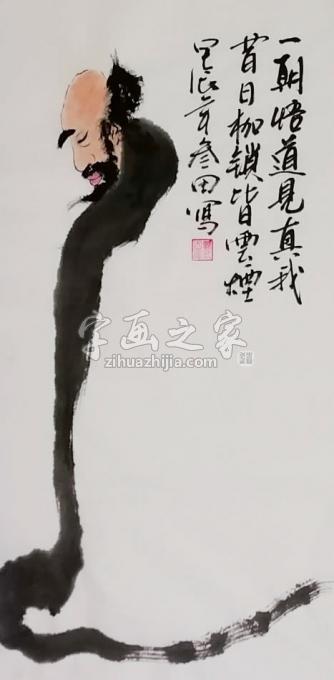 一朝悟道見真我
昔日枷鎖皆雲煙
甲辰年叁田寫
字画之家
zihuazhijia.com